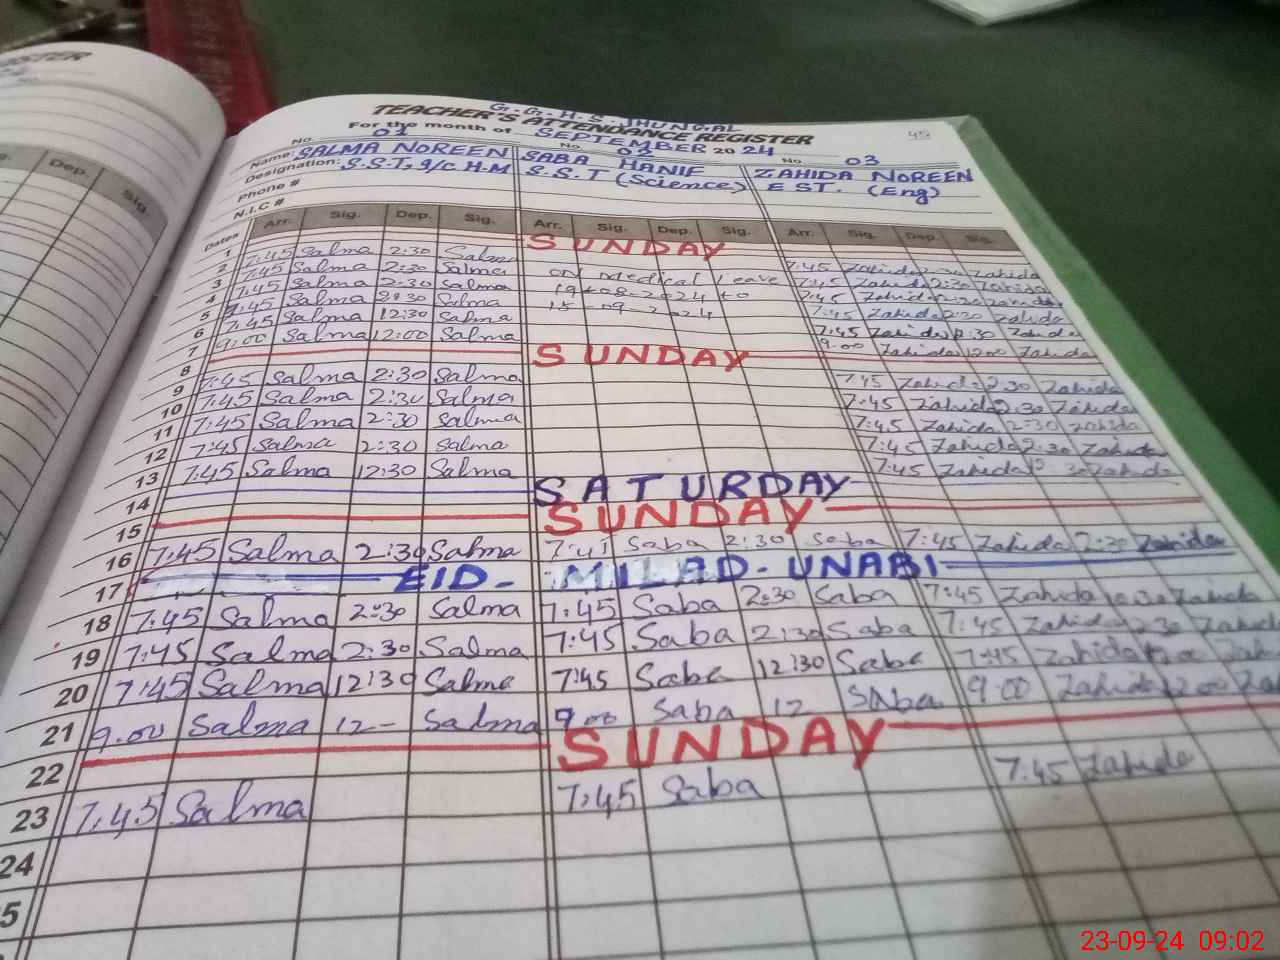 G.G.H.S. JHUNGAL
TEACHER'S ATTENDANCE REGISTER
45
For the month of SEPTEMBER 2024
No. 01 No. 02 No. 03
Name: SALMA NOREEN SABA HANIF ZAHIDA NOREEN
Designation: S.S.T, I/C H.M S.S.T (Science) EST. (Eng)
Phone #
N.I.C #
Dep. Sig.
Dates Arr. Sig. Dep. Sig. Arr. Sig. Dep. Sig. Arr. Sig. Dep. Sig.
1 SUNDAY
2 7:45 Salma 2:30 Salma 7:45 Zahida 2:30 Zahida
3 7:45 Salma 2:30 Salma on Medical Leave 7:45 Zahida 2:30 Zahida
4 7:45 Salma 2:30 Salma 19-08-2024 to 7:45 Zahida 2:30 Zahida
5 7:45 Salma 2:30 Salma 15-09-2024 7:45 Zahida 2:30 Zahida
6 7:45 Salma 12:30 Salma 7:45 Zahida 12:30 Zahida
7 9:00 Salma 12:00 Salma 9:00 Zahida 12:00 Zahida
8 SUNDAY
9 7:45 Salma 2:30 Salma 7:45 Zahida 2:30 Zahida
10 7:45 Salma 2:30 Salma 7:45 Zahida 2:30 Zahida
11 7:45 Salma 2:30 Salma 7:45 Zahida 2:30 Zahida
12 7:45 Salma 2:30 Salma 7:45 Zahida 2:30 Zahida
13 7:45 Salma 12:30 Salma 7:45 Zahida Zahida
14 SATURDAY
15 SUNDAY
16 7:45 Salma 2:30 Salma 7:41 Saba 2:30 Saba 7:45 Zahida 2:30 Zahida
17 EID-MILAD-UNABI
18 7:45 Salma 2:30 Salma 7:45 Saba 2:30 Saba 7:45 Zahida Zahida
19 7:45 Salma 2:30 Salma 7:45 Saba 2:30 Saba 7:45 Zahida 2:30 Zahida
20 7:45 Salma 12:30 Salma 7:45 Saba 12:30 Saba 7:45 Zahida
21 9.00 Salma 12- Salma 9.00 Saba 12 Saba 9:00 Zahida 12:00
22 SUNDAY
23 7:45 Salma 7:45 Saba 7:45 Zahida
24
23-09-24 09:02